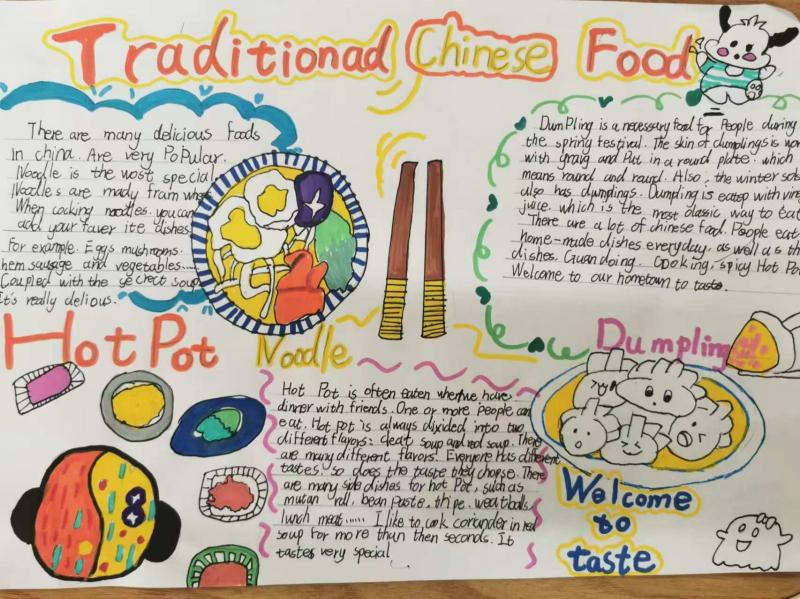 Traditionad Chinese Food
There are many delicious foods
in china. Are very PoPular.
Noodle is the wost special
Noodles are mady fram
When cocking noodles. you can
add your faver ite dishes
For example. Eggs mushrooms.
hem sausage and vegetables.....
Coupled with the secrect soup
It's really delious.
DumPling is a necessary food for People during
the spring festival. The skin of dumplings is
with and Put in a round plate. which
means round and round. Also, the winter
also has dumplings. Dumpling is eatep with
juice. which is the most classic, way to eat
There are a lot of chinese food. People eat
home-made dishes everyday, as well as
dishes. Guandoing. Cooking, spicy Hot
Welcome to our hometown to taste.
Hot Pot
Noodle
Dumpling
Hot Pot is often eaten have
dinner with friends. One or more people can
eat. Hot pot is always dixided into two
different flavors: clear soup and red soup. There
are many different flavors! Everyone has different
tastes, so does the taste they choose. There
are many side dishes for hot Pot, such as
mutan roll, bean paste, thipe, weatballs
lunch meat...... I like to cook coriander in red
soup for more than then seconds. It
tastes very special
Welcome
to
taste